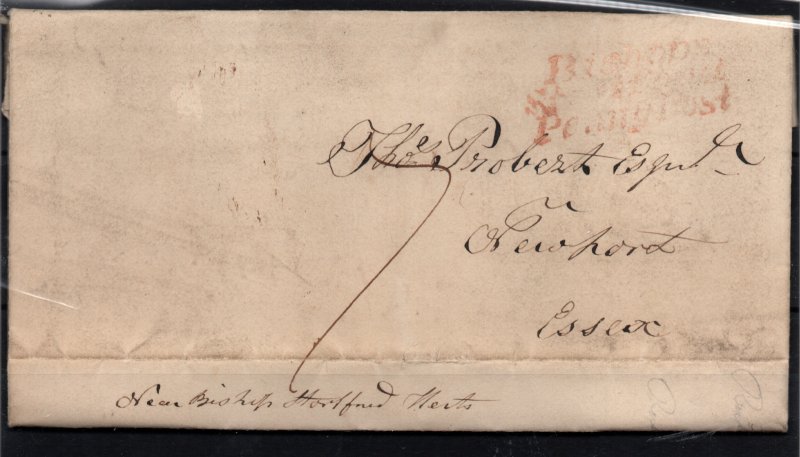 Bishops
Penny Post
Thos Probert Esqr
Newport
Essex
7
Near Bishops Stortford Herts